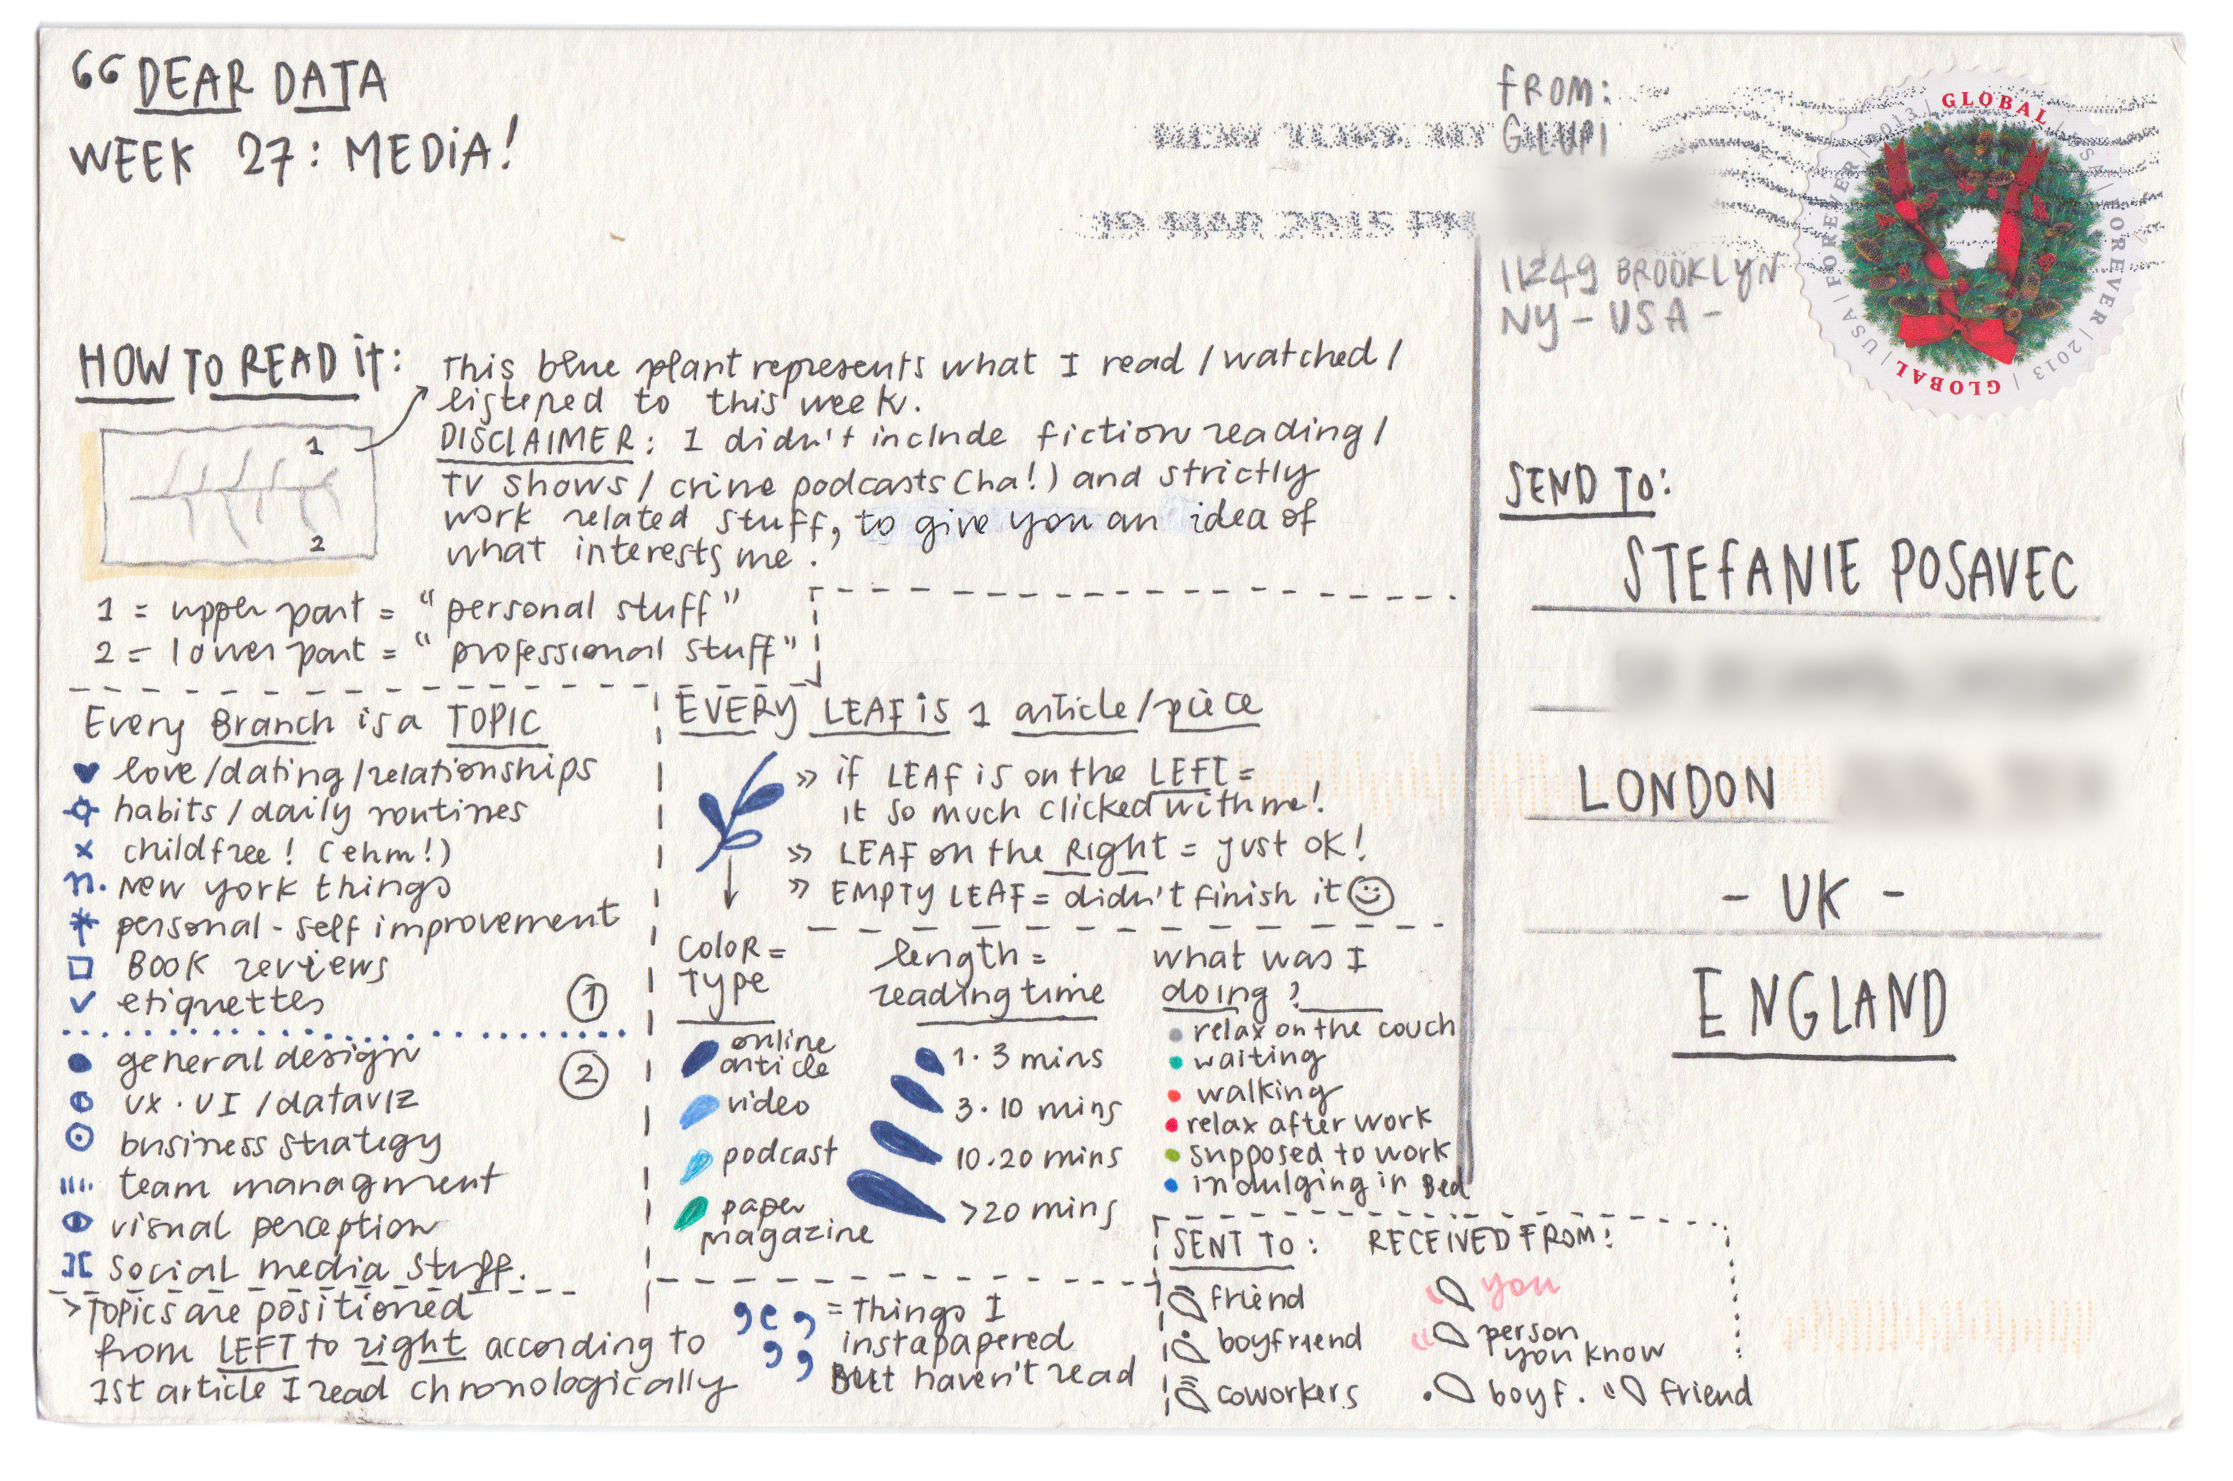 DEAR DATA
WEEK 27: MEDiA!
NEW YORK NY
19 MAR 2015 PM
FROM:
G.LUPI
11249 BROOKLYN
NY - USA -
GLOBAL | USA | FOREVER | 2013 | GLOBAL | USA | FOREVER | 2013 |
HOW TO READ iT:
This blue plant represents what I read / watched /
listened to this week.
DISCLAIMER: I didn't include fiction reading /
TV shows / crime podcasts (ha!) and strictly
work related stuff, to give you an idea of
what interests me.
1
2
1 = upper part = "personal stuff"
2 = lower part = "professional stuff"
SEND TO:
STEFANIE POSAVEC
LONDON
- UK -
ENGLAND
Every Branch is a TOPIC
love/dating/relationships
habits / daily routines
childfree! (ehm!)
New york things
personal - self improvement
BOOK reviews
etiquettes
1
general design
2
UX · UI / dataviz
business strategy
team managment
visual perception
social media stuff.
> TOPICS are positioned
from LEFT to right according to
1st article I read chronologically
EVERY LEAF iS 1 article/piece
» if LEAF iS on the LEFT =
it so much clicked with me!
» LEAF on the Right = just OK!
» EMPTY LEAF = didn't finish it
COLOR =
Type
online
article
video
podcast
paper
magazine
length =
reading time
1 · 3 mins
3 · 10 mins
10 · 20 mins
>20 mins
what was I
doing?
relax on the couch
waiting
walking
relax after work
supposed to work
indulging in Bed
= Things I
instapapered
But haven't read
SENT TO:
friend
boyfriend
coworkers
RECEIVED FROM:
you
person
you know
boyf.
friend